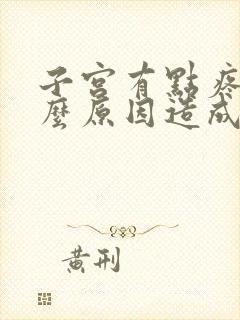 子宮有點疼
麼原因造成
黄刑